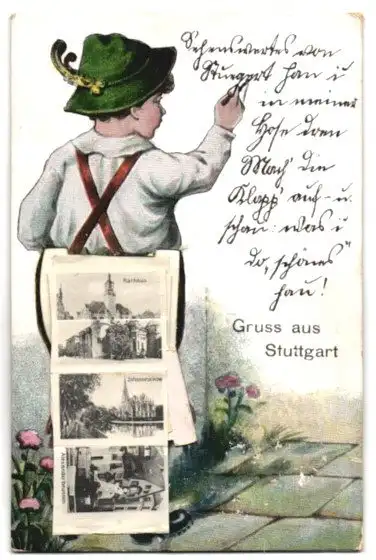 Sehenswertes von
Stuegert han i
in meiner
Hose dren
Mach' die
Klapp' auf - u.
schau: was i
do „schönes“
hau!
Gruss aus
Stuttgart
Rathaus
Johanneskirche